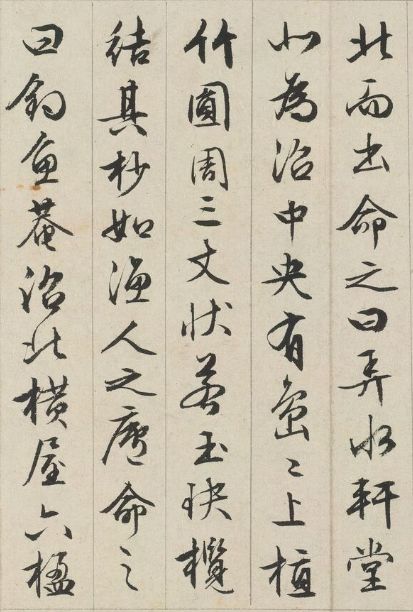 北而出命之曰弄水軒堂
北為沼中央有島〻上植
竹圓周三丈狀若玉玦攬
結其杪如漁人之廬命之
曰釣魚菴沼北橫屋六楹